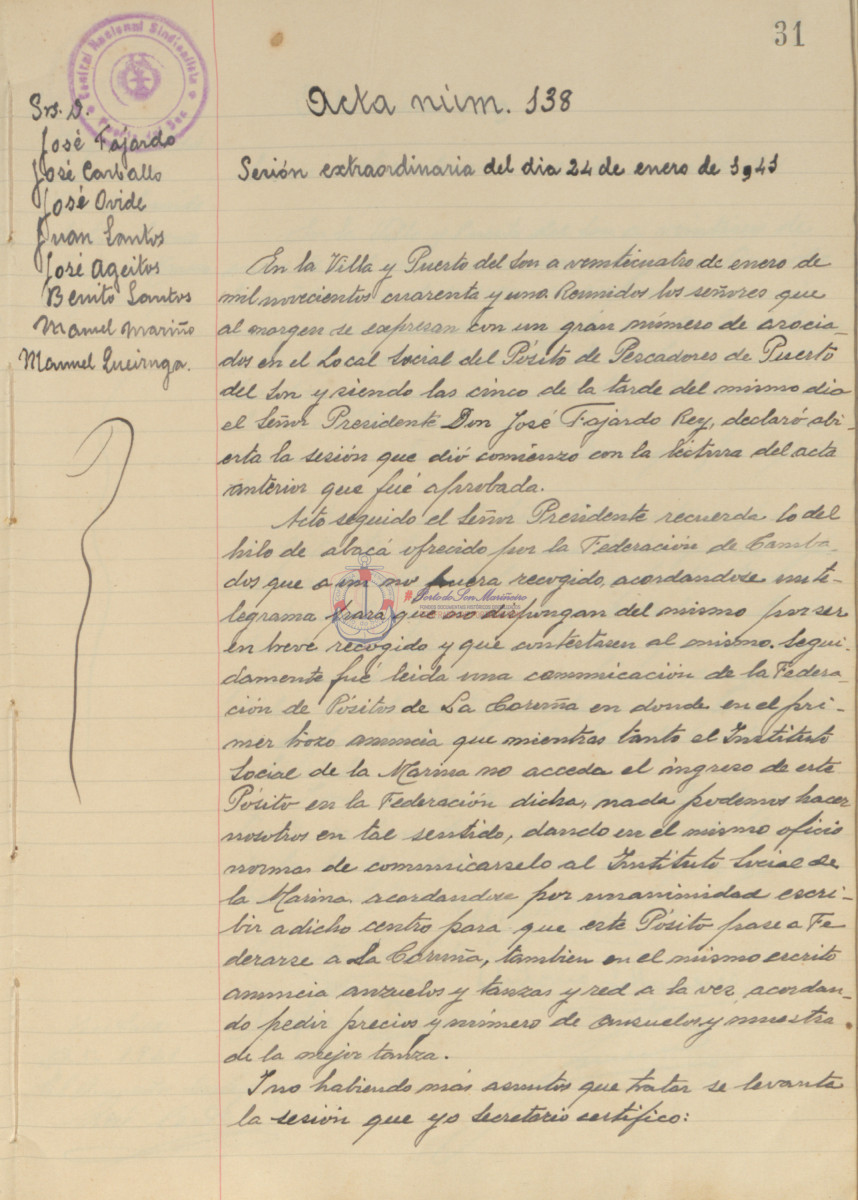 31
Central Nacional Sindicalista
Acta núm. 138
Srs. D.
José Fajardo
José Carballo
José Ovide
Juan Santos
José Ageitos
Benito Santos
Manuel Mariño
Manuel Queiruga.
Sesión extraordinaria del dia 24 de enero de 1941
En la Villa y Puerto del Son a veinticuatro de enero de
mil novecientos cuarenta y uno. Reunidos los señores que
al margen se expresan con un gran número de asocia-
dos en el Local Social del Pósito de Pescadores de Puerto
del Son y siendo las cinco de la tarde del mismo dia
el Señor Presidente Don José Fajardo Rey, declaró abi-
erta la sesión que dió comienzo con la lectura del acta
anterior que fué aprobada.
Acto seguido el Señor Presidente recuerda lo del
hilo de abacá ofrecido por la Federación de Camba-
dos que no fuera recogido, acordandose un te-
legrama para que no dispongan del mismo por ser
en breve recogido y que contestasen al mismo. Segui-
damente fué leida una comunicación de la Federa-
ción de Pósitos de La Coruña en donde en el pri-
mer trozo anuncia que mientras tanto el Instituto
Social de la Marina no acceda el ingreso de este
Pósito en la Federación dicha, nada podemos hacer
nosotros en tal sentido, dando en el mismo oficio
normas de comunicarselo al Instituto Social de
la Marina. acordandose por unanimidad escri-
bir a dicho centro para que este Pósito pase a Fe
derarse a La Coruña, tambien en el mismo escrito
anuncia anzuelos y tanzas y red a la vez acordan-
do pedir precios y número de ansuelos y muestra
de la mejor tanza.
I no habiendo más asuntos que tratar se levanta
la sesión que yo Secretario certifico:
Porto do Son Mariñeiro